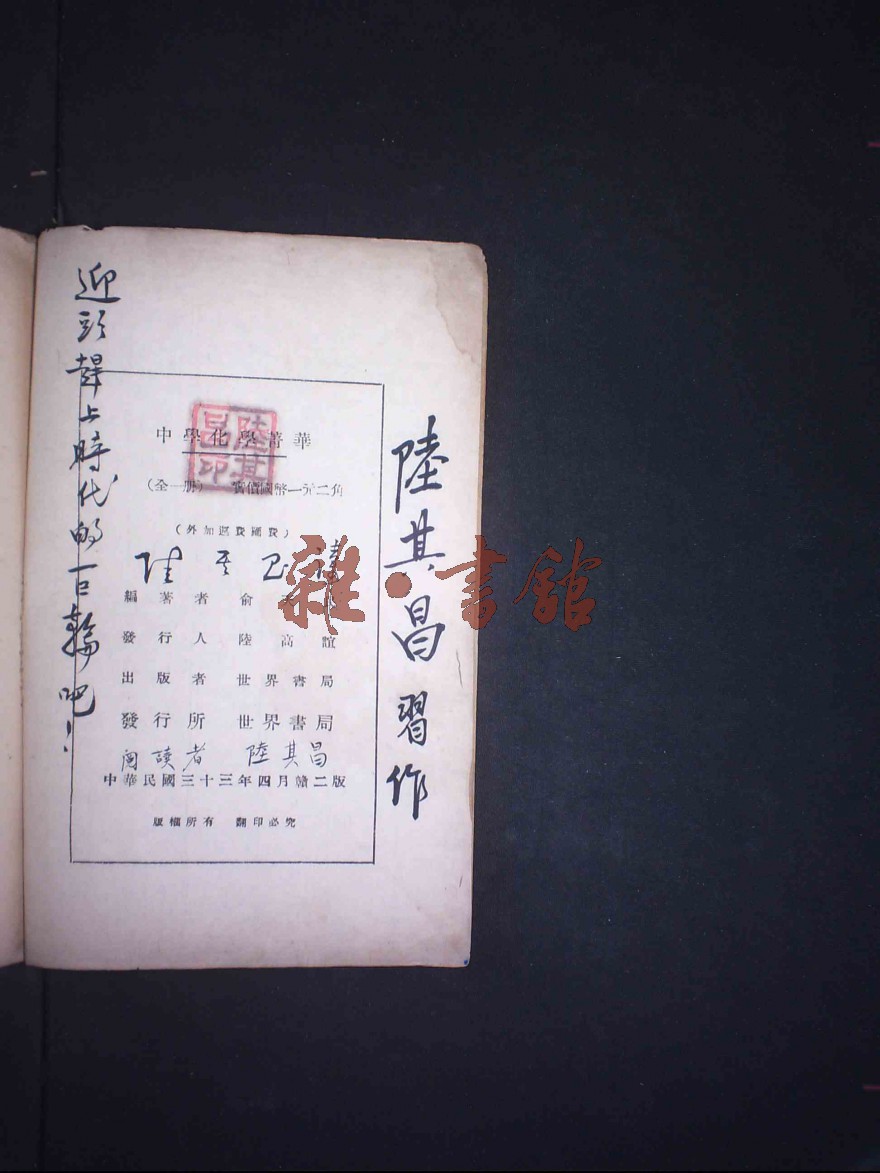 陸其昌習作
中學化學菁華
(全一册) 實價國幣一元二角
(外加運費匯費)
編著者 俞
發行人 陸高誼
出版者 世界書局
發行所 世界書局
閱讀者 陸其昌
中華民國三十三年四月贛二版
版權所有 翻印必究
迎頭趕上時代的巨輪吧！
陸其昌印
雜·書館